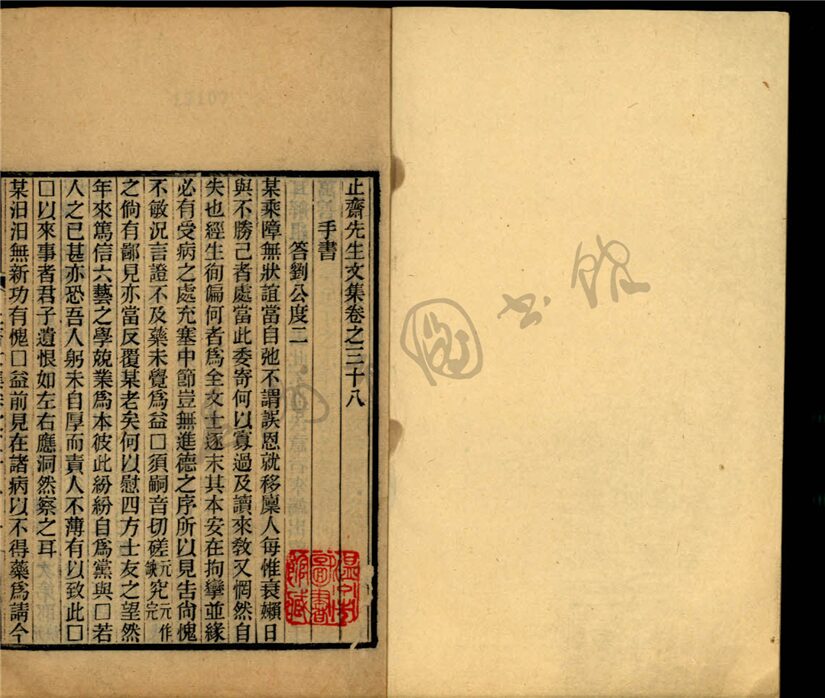 止齋先生文集卷之三十八
手書
答劉公度二
某乘障無狀誼當自弛不謂誤恩就移廩人每惟衰嬾日
與不勝己者處當此委寄何以寡過及讀來教又惘然自
失也經生徇偏何者爲全文士逐末其本安在拘攣並緣
必有受病之處充塞中節豈無進德之序所以見告尙愧
不敏況言證不及藥未覺爲益□須嗣音切磋元缺究元作完
之倘有鄙見亦當反覆某老矣何以慰四方士友之望然
年來篤信六藝之學兢業爲本彼此紛紛自爲黨與□若
人之已甚亦恐吾人躬未自厚而責人不薄有以致此□
□以來事者君子遺恨如左右應洞然察之耳
某汨汨無新功有愧□益前見在諸病以不得藥爲請今
圖書館藏
書館